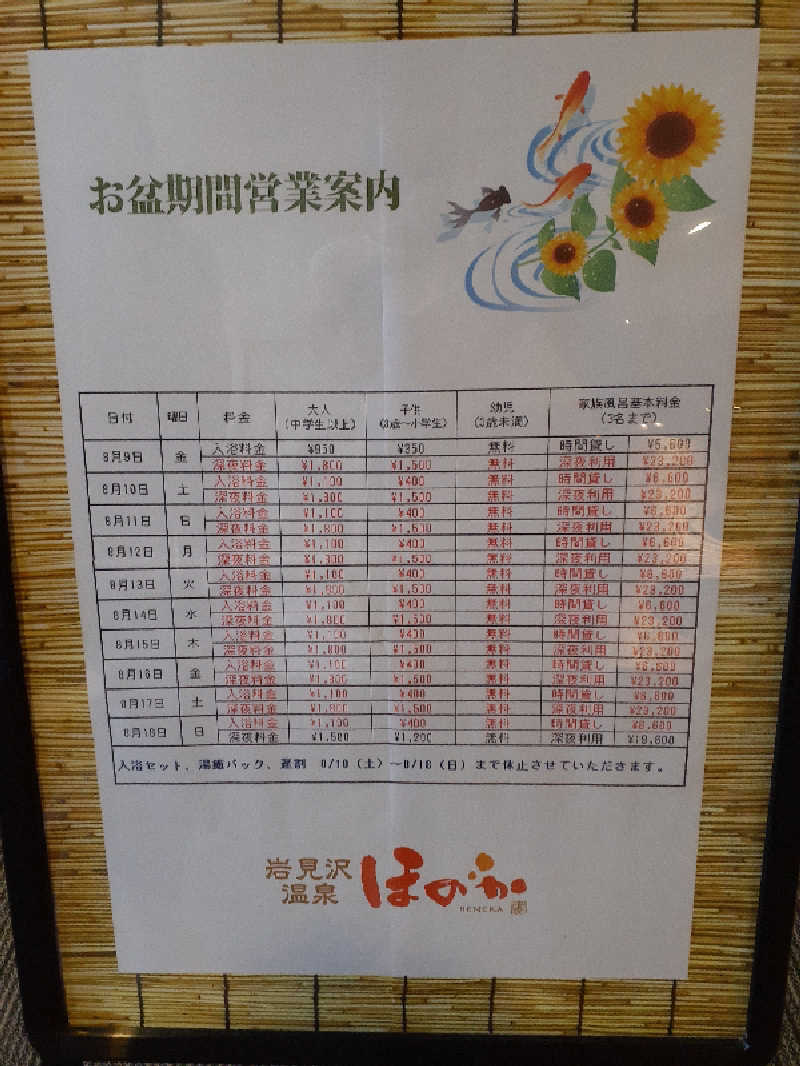 お盆期間営業案内
日付 曜日 料金 大人 (中学生以上) 子供 (3歳~小学生) 幼児 (3歳未満) 家族風呂基本料金 (3名まで)
8月9日 金 入浴料金 ¥950 ¥350 無料 時間貸し
深夜料金 ¥1,800 ¥1,500 無料 深夜利用 ¥23,200
8月10日 土 入浴料金 ¥1,100 ¥400 無料 時間貸し ¥6,600
深夜料金 ¥1,800 ¥1,500 無料 深夜利用 ¥23,200
8月11日 日 入浴料金 ¥1,100 ¥400 無料 時間貸し ¥6,600
深夜料金 ¥1,800 ¥1,500 無料 深夜利用 ¥23,200
8月12日 月 入浴料金 ¥1,100 ¥400 無料 時間貸し ¥6,600
深夜料金 ¥1,800 ¥1,500 無料 深夜利用 ¥23,200
8月13日 火 入浴料金 ¥1,100 ¥400 無料 時間貸し ¥6,600
深夜料金 ¥1,800 ¥1,500 無料 深夜利用 ¥23,200
8月14日 水 入浴料金 ¥1,100 ¥400 無料 時間貸し ¥6,600
深夜料金 ¥1,800 ¥1,500 無料 深夜利用 ¥23,200
8月15日 木 入浴料金 ¥1,100 ¥400 無料 時間貸し ¥6,600
深夜料金 ¥1,800 ¥1,500 無料 深夜利用 ¥23,200
8月16日 金 入浴料金 ¥1,100 ¥400 無料 時間貸し ¥6,600
深夜料金 ¥1,800 ¥1,500 無料 深夜利用 ¥23,200
8月17日 土 入浴料金 ¥1,100 ¥400 無料 時間貸し ¥6,600
深夜料金 ¥1,800 ¥1,500 無料 深夜利用 ¥23,200
8月18日 日 入浴料金 ¥1,100 ¥400 無料 時間貸し ¥6,600
深夜料金 ¥1,500 ¥1,200 無料 深夜利用 ¥19,800
入浴セット、湯癒パック、遅割 8/10(土)~8/18(日)まで休止させていただきます。
岩見沢
温泉
ほのか
HONOKA